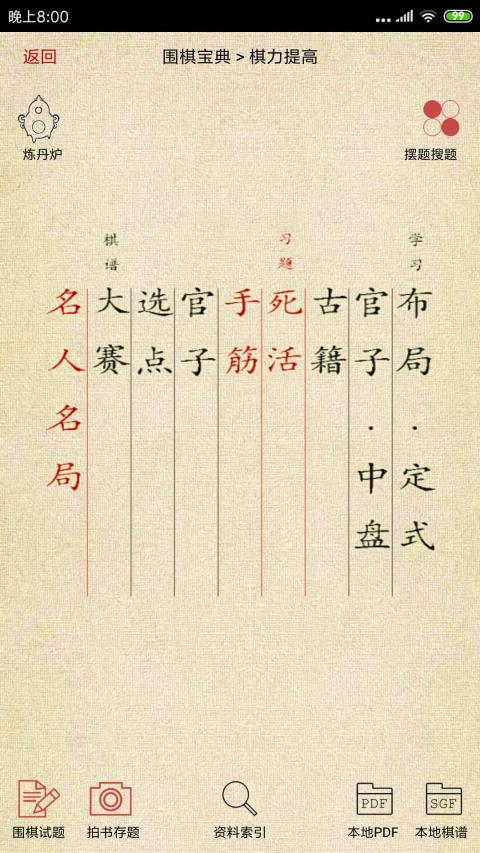 晚上8:00
99
返回
围棋宝典 > 棋力提高
炼丹炉
摆题搜题
学习
习题
棋谱
布局·定式
官子·中盘
古籍
死活
手筋
官子
选点
大赛
名人名局
PDF
SGF
围棋试题
拍书存题
资料索引
本地PDF
本地棋谱